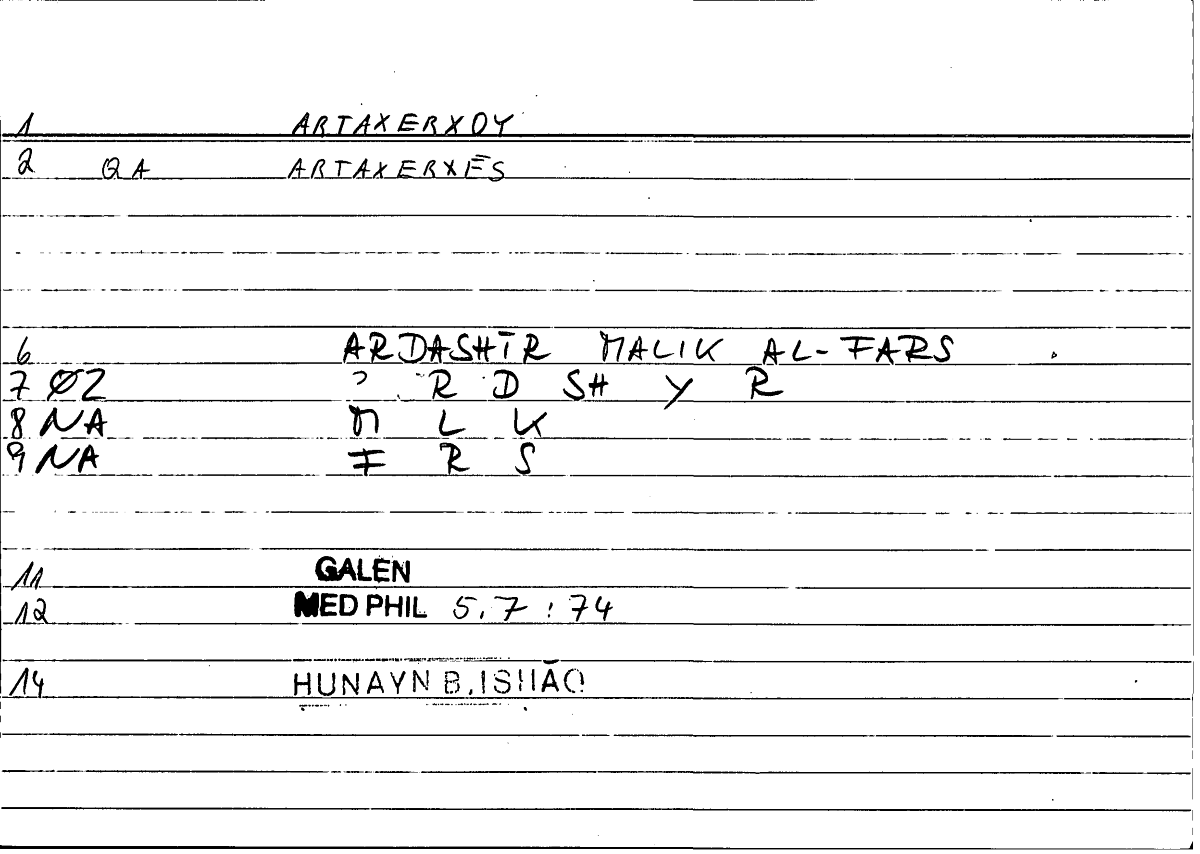 1 ARTAXERXOY
2 QA ARTAXERXĒS
6 ARDASHĪR MALIK AL-FARS
7 ØZ ʾ R D SH Y R
8 NA M L K
9 NA F R S
11 GALEN
12 MED PHIL 5,7 : 74
14 ḤUNAYN B. ISḤĀQ